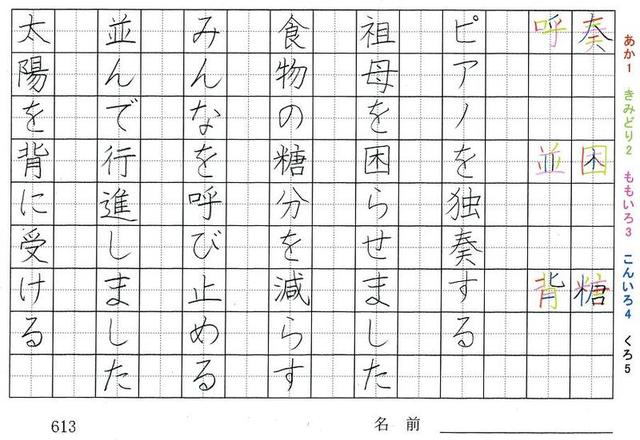 あか1 きみどり2 ももいろ3 こんいろ4 くろ5
奏 困 糖
呼 並 背
ピアノを独奏する
祖母を困らせました
食物の糖分を減らす
みんなを呼び止める
並んで行進しました
太陽を背に受ける
613
名前